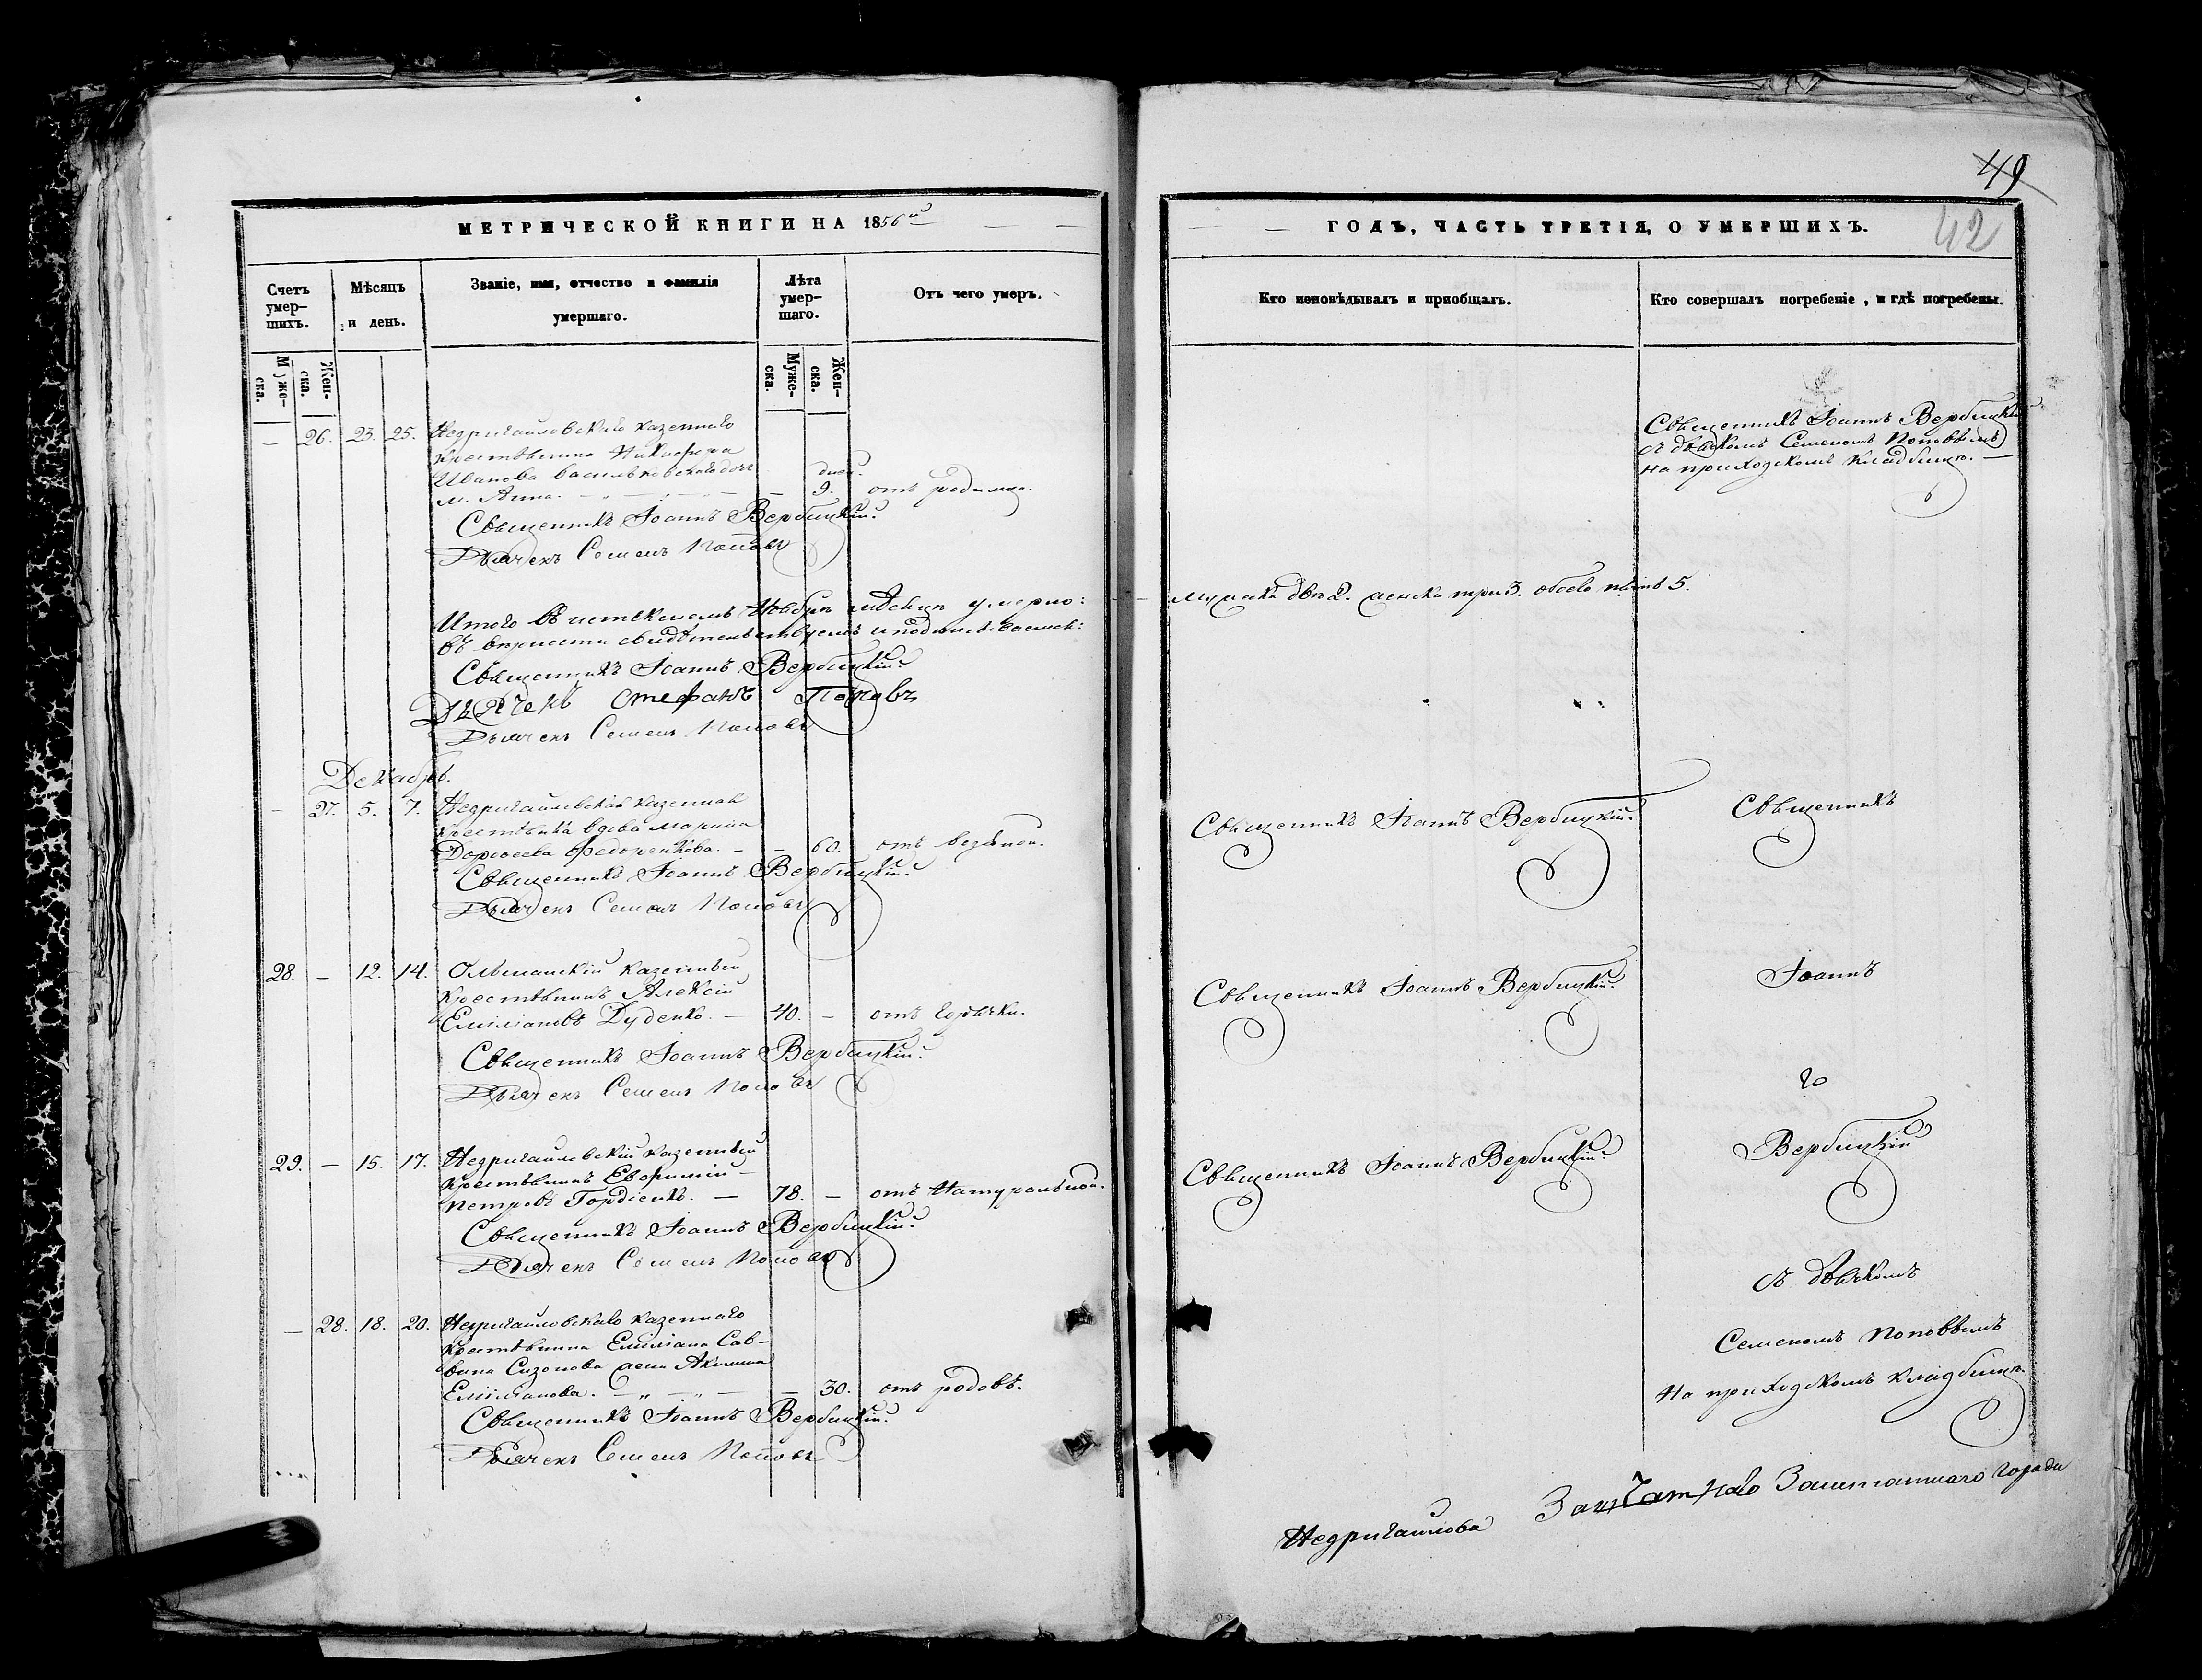 49
42
МЕТРИЧЕСКОЙ КНИГИ НА 1856й
ГОДЪ, ЧАСТЬ ТРЕТІЯ, О УМЕРШИХЪ.
Счетъ умер-
шихъ.
Мѣсяцъ
и день.
Званіе, имя, отчество и фамилія
умершаго.
Лѣта
умер-
шаго.
Отъ чего умеръ.
Кто исповѣдывалъ и приобщалъ.
Кто совершалъ погребеніе, и гдѣ погребены.
Муже-
ска.
Жен-
ска.
Муже-
ска.
Жен-
ска.
— 26. 23. 25. Недригайловскаго казеннаго
крестьянина Никифора
Иванова Васильковскаго дочь
дней.
м. Анна. — 9. отъ родимца.
Священникъ Іоаннъ Вербицкій.
Дьячекъ Семенъ Поповъ
Священникъ Іоаннъ Вербицкій
съ дьячкомъ Семеномъ Поповымъ
на приходскомъ кладбищѣ. —
Итого въ истекшемъ Ноябрѣ мѣсяцѣ умерло:
мужска два 2. женска три 3. обоего пять 5.
въ вѣрности свидѣтельствуемъ и подписываемся:
Священникъ Іоаннъ Вербицкій.
Дьячекъ Стефанъ Поповъ
Дьячекъ Семенъ Поповъ
Декабрь.
— 27. 5. 7. Недригайловская казенная
крестьянка вдова Марина
Дорофеева Федоренкова. — — 60. отъ
Священникъ Іоаннъ Вербицкій.
Дьячекъ Семенъ Поповъ
Священникъ Іоаннъ Вербицкій.
Священникъ
28. — 12. 14. Ольшанскій казенный
крестьянинъ Алексій
Емиліановъ Дуденко. — 40. — отъ горячки.
Священникъ Іоаннъ Вербицкій.
Дьячекъ Семенъ Поповъ
Священникъ Іоаннъ Вербицкій.
Іоаннъ
29. — 15. 17. Недригайловскій казенный
крестьянинъ Евфимій
Петровъ Гордіенко. — 78. — отъ Натуральной.
Священникъ Іоаннъ Вербицкій.
Дьячекъ Семенъ Поповъ
Священникъ Іоаннъ Вербицкій.
Вербицкій
съ дьячкомъ
— 28. 18. 20. Недригайловскаго казеннаго
крестьянина Емиліана Сав-
вина Сизонова жена Акилина
Емиліанова. — „ — „ — — 30. отъ родовъ.
Священникъ Іоаннъ Вербицкій.
Дьячекъ Семенъ Поповъ
Семеномъ Поповымъ
на приходскомъ кладбищѣ.
Недригайлова
Заштатнаго города